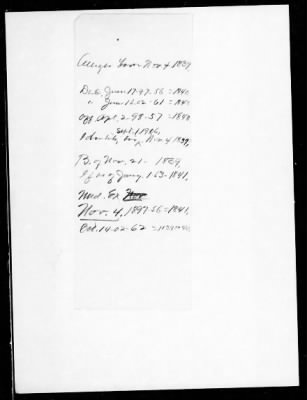 Alleges born Nov 4 1839
Dec. June 17-97-56 = 1840
" June 16-02-61 = 1841
Aff. Apl. 2-98-57 = 1840
Sept. 1, 1906,
Nov 4 1839,
B. of Nov. 21 - 1839
of Jany. 1 63-1841,
Med. Ex
Nov. 4, 1897-56 = 1841,
Oct. 14-02-62 =